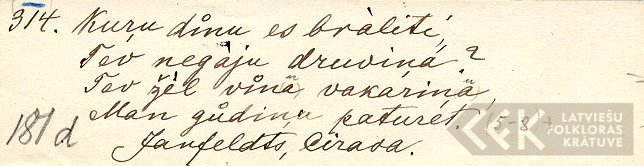 314. Kuru dinu es brāliti,
Tev negāju druvinā?
Tev žēl vinā vakarinā,
Man gudinu paturet.
181 d
Janfeldts, Cirava.
LATVIEŠU
FOLKLORAS
KRĀTUVE